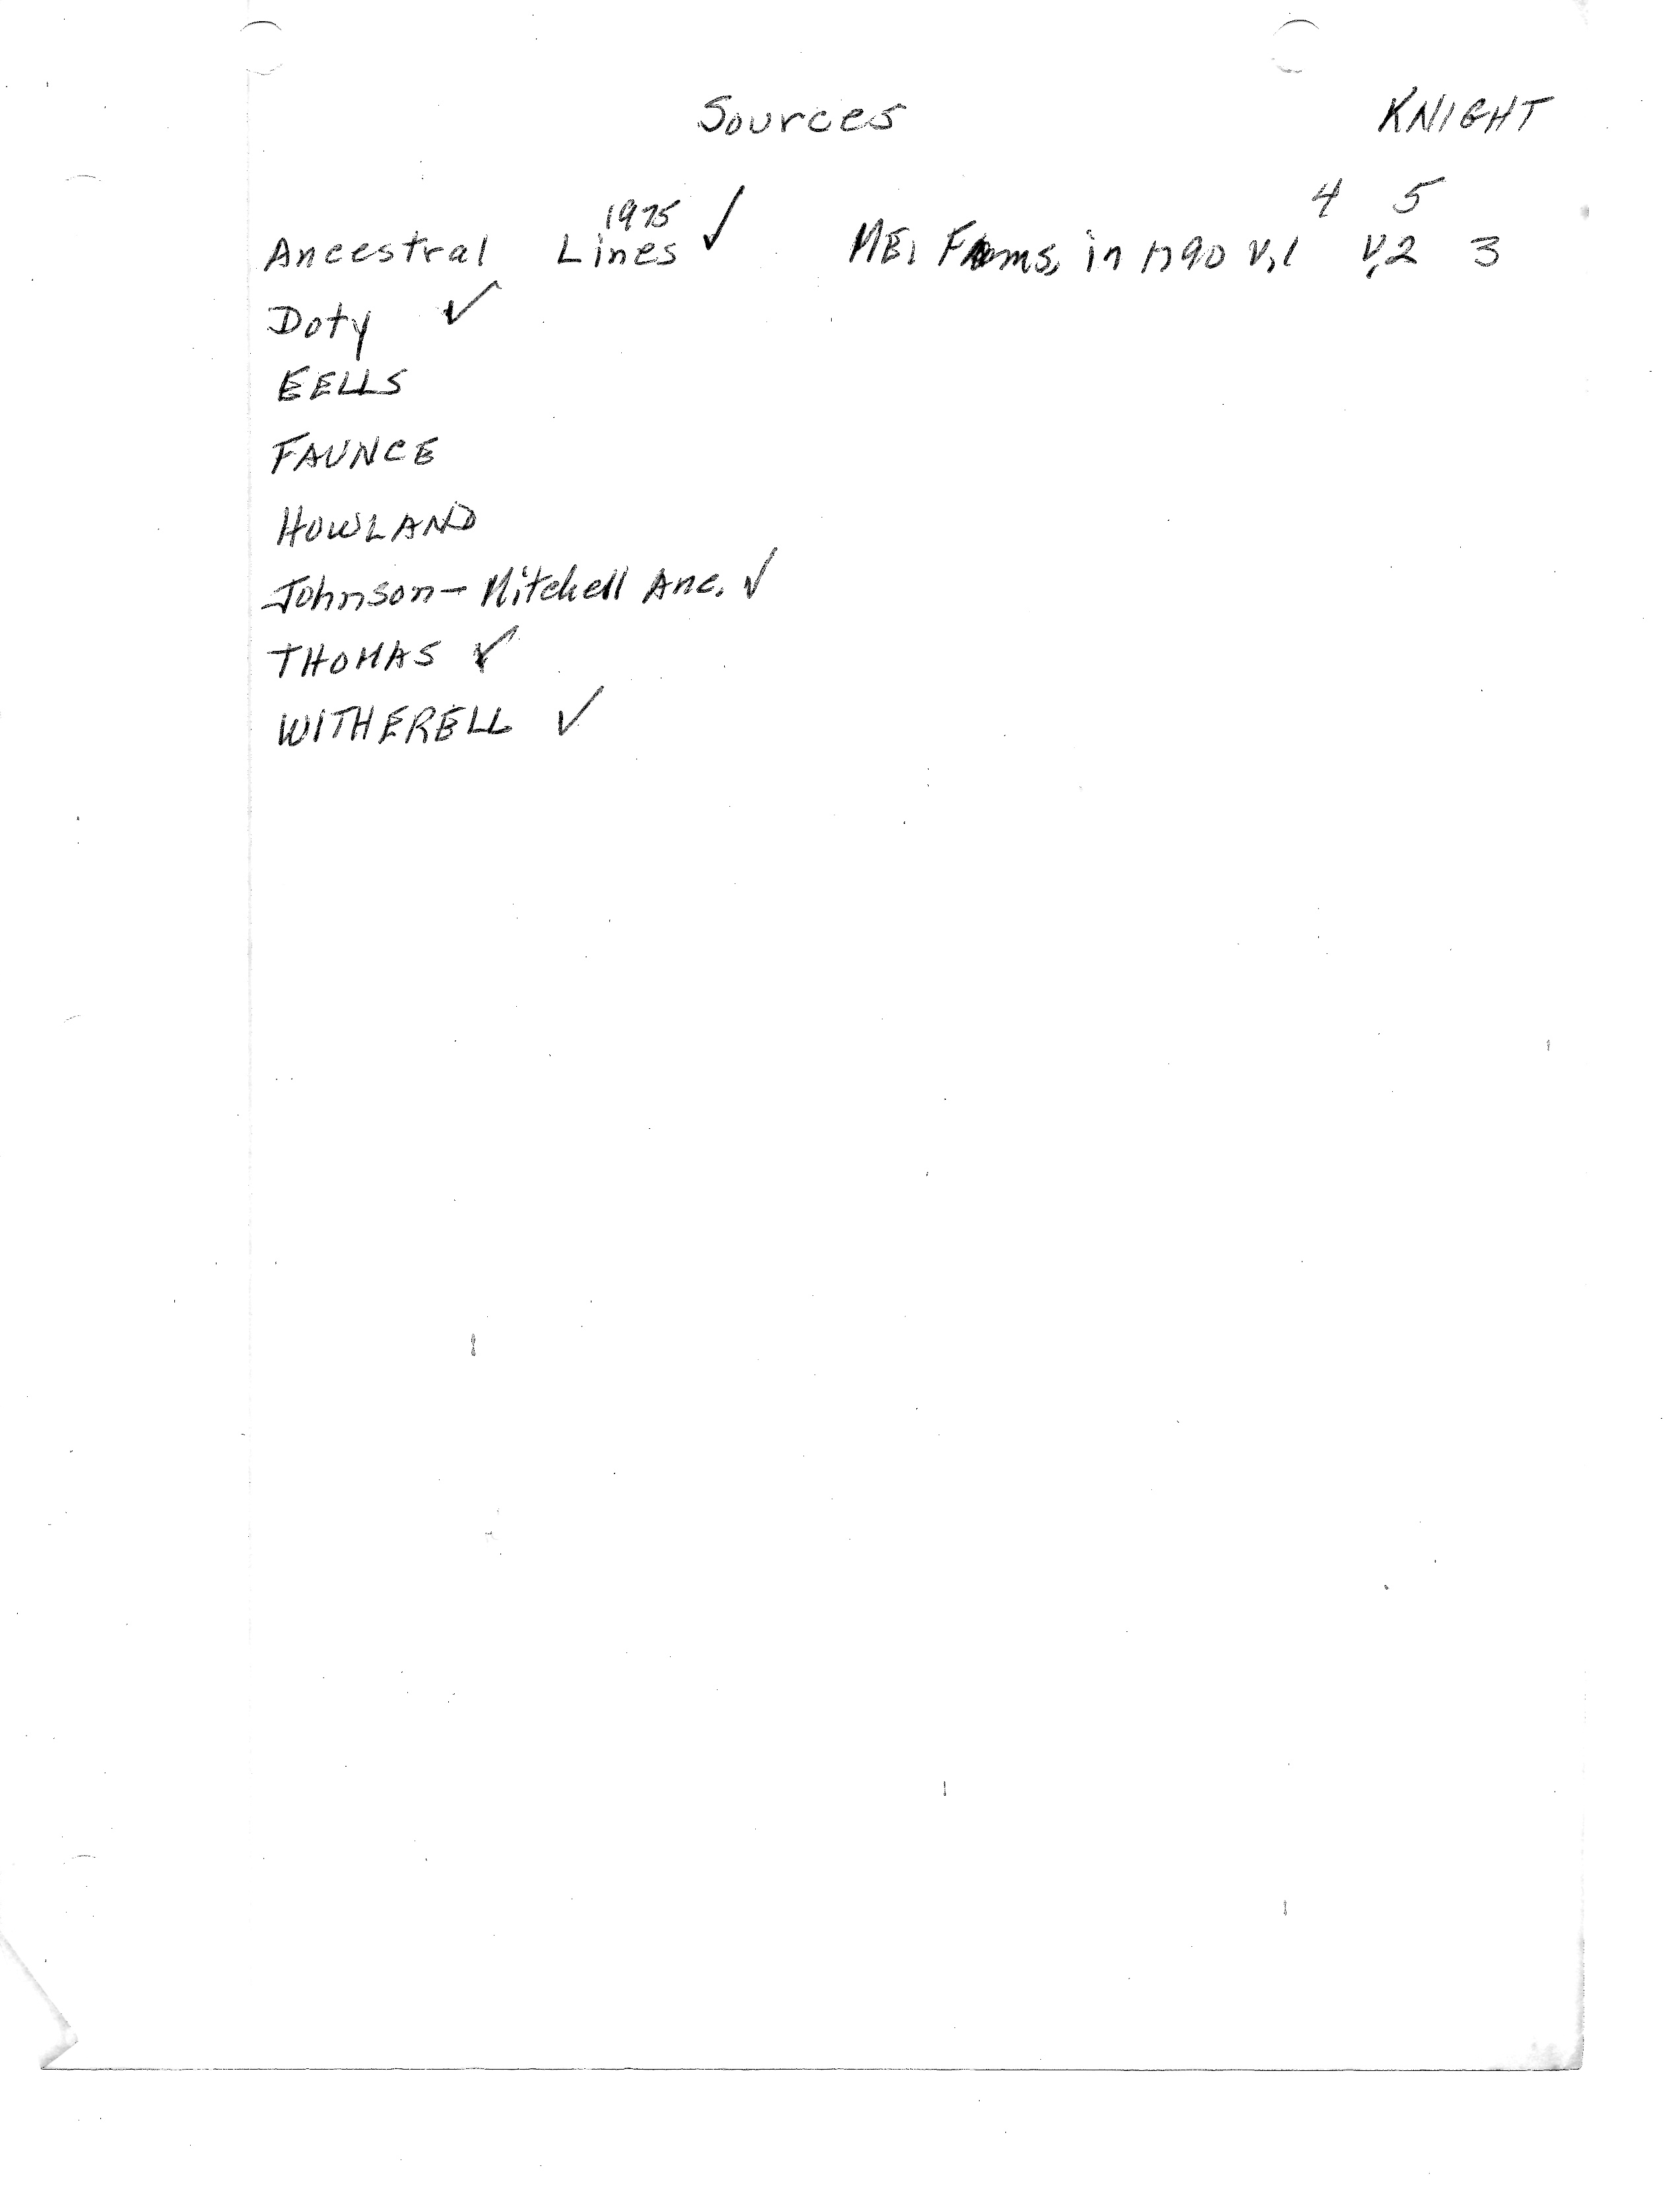 Sources KNIGHT
4 5
1975
Ancestral Lines ✓ ME. Fams. in 1790 V.1 V.2 3
Doty ✓
EELLS
FAUNCE
HOWLAND
Johnson-Mitchell Anc. ✓
THOMAS ✓
WITHERELL ✓